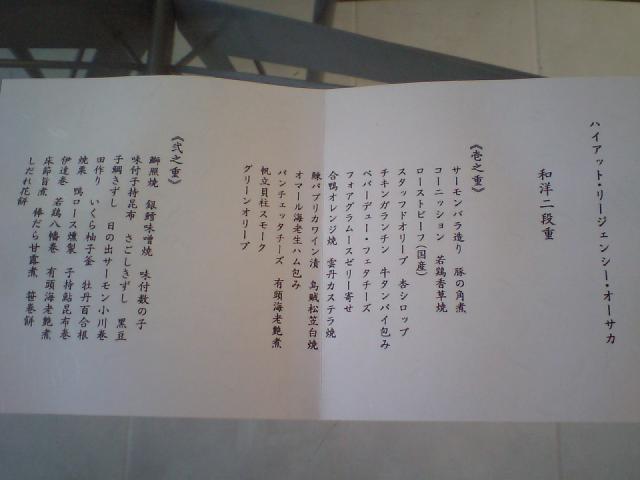 ハイアット・リージェンシー・オーサカ
和洋二段重
《壱之重》
サーモンバラ造り 豚の角煮
コーニッション 若鶏香草焼
ローストビーフ(国産)
スタッフドオリーブ 杏シロップ
チキンガランチン 牛タンパイ包み
ペパーデュー・フェタチーズ
フォアグラムースゼリー寄せ
合鴨オレンジ焼 雲丹カステラ焼
鰊パプリカワイン漬 烏賊松笠白焼
オマール海老生ハム包み
パンチェッタチーズ 有頭海老艶煮
帆立貝柱スモーク
グリーンオリーブ
《弐之重》
鰤照焼 銀鱈味噌焼 味付数の子
味付子持昆布 さごしきずし 黒豆
子鯛きずし 日の出サーモン小川巻
田作り いくら柚子釜 牡丹百合根
焼栗 鴨ロース燻製 子持鮎昆布巻
伊達巻 若鶏八幡巻 有頭海老艶煮
床節旨煮 棒だら甘露煮 笹巻餅
しだれ花餅